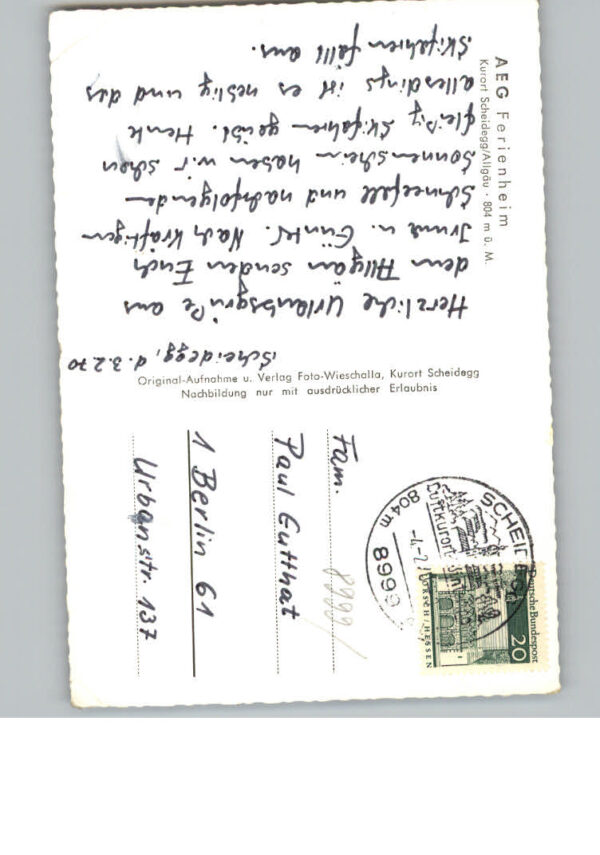 AEG Ferienheim
Kurort Scheidegg/Allgäu · 804 m ü. M.
Scheidegg, d. 3.2.70
Herzliche Urlaubsgrüße aus
dem Allgäu senden Euch
Irmel u. Günter. Nach kräftigem
Schneefall und nachfolgendem
Sonnenschein haben wir schon
fleißig Skifahren geübt. Heute
allerdings ist es neblig und das
Skifahren fällt aus.
Original-Aufnahme u. Verlag Foto-Wieschalla, Kurort Scheidegg
Nachbildung nur mit ausdrücklicher Erlaubnis
Deutsche Bundespost
20
LORSCH/HESSEN
SCHEIDEGG
Luftkurort
804 m
8999
8999/
Fam.
Paul Gutthat
1 Berlin 61
Urbanstr. 137